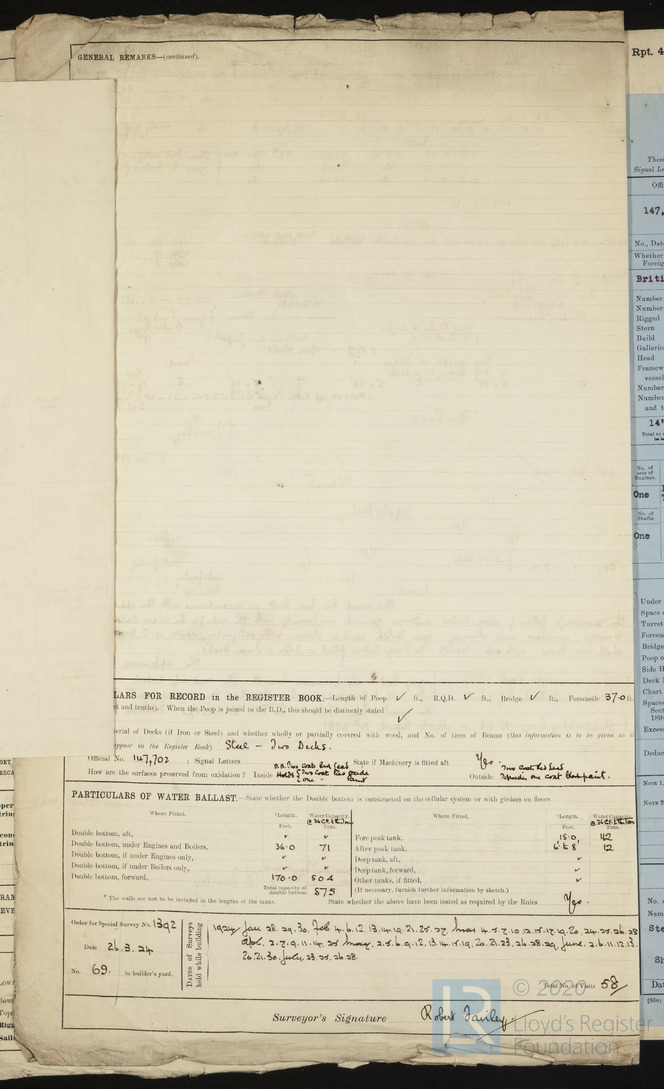 GENERAL REMARKS—(continued).
LARS FOR RECORD in the REGISTER BOOK.—Length of Poop ✓ ft., R.Q.D. ✓ ft., Bridge ✓ ft., Forecastle 37.0 ft.
and tenths). When the Poop is joined to the B.D., this should be distinctly stated ✓
terial of Decks (if Iron or Steel) and whether wholly or partially covered with wood, and No. of tiers of Beams (this information is to be given as it
appear in the Register Book) Steel — Two Decks.
Official No. 147,702 : Signal Letters State if Machinery is fitted aft Yes.
How are the surfaces preserved from oxidation? Inside Outside
PARTICULARS OF WATER BALLAST.—State whether the Double bottom is constructed on the cellular system or with girders on floors
Where Fitted. *Length. Feet. Water Capacity. Tons. Where Fitted. *Length. Feet. Water Capacity. Tons.
Double bottom, aft, ✓ ✓ Fore peak tank, 15.0 42
Double bottom, under Engines and Boilers, 36.0 71 After peak tank, 12
Double bottom, if under Engines only, ✓ ✓ Deep tank, aft, ✓
Double bottom, if under Boilers only, ✓ ✓ Deep tank, forward, ✓
Double bottom, forward, 170.0 504 Other tanks, if fitted, ✓
Total capacity of double bottom 575 (If necessary, furnish further information by sketch.)
* The wells are not to be included in the lengths of the tanks. State whether the above have been tested as required by the Rules Yes.
Order for Special Survey No. 1392
Date 26.3.24
No. 69. in builder's yard.
Dates of Surveys held while building
1924 Jan 28. 29. 30. Feb 4. 6. 12. 13. 14. 19. 21. 25. 27. Mar 4. 5. 7. 10. 12. 15. 17. 19. 20. 24. 25. 26. 28
Apl. 2. 7. 9. 11. 14. 25 May. 2. 5. 6. 9. 12. 13. 14. 15. 19. 20. 21. 23. 26. 28. 29. June. 2. 6. 11. 12. 13.
20. 21. 30. July. 23. 25. 26. 28.
Total No. of Visits 58
Surveyor's Signature Robert
© 2020
Lloyd's Register
Foundation
Rpt. 4
Signal Le
147,
No., Dat
Whether
Foreig
Briti
Number
Number
Rigged
Stern
Build
Gallerie
Head
Framew
vessel
Number
Number
and t
No. of
sets of
Engines.
One
No. of
Shafts.
One
Under
Space
Turret
Foreca
Bridge
Poop o
Side H
Deck
Chart
Spaces
Excess
Deduc
Note 1.
Note 2.
No.
Nam
Ste
Sh
Dat